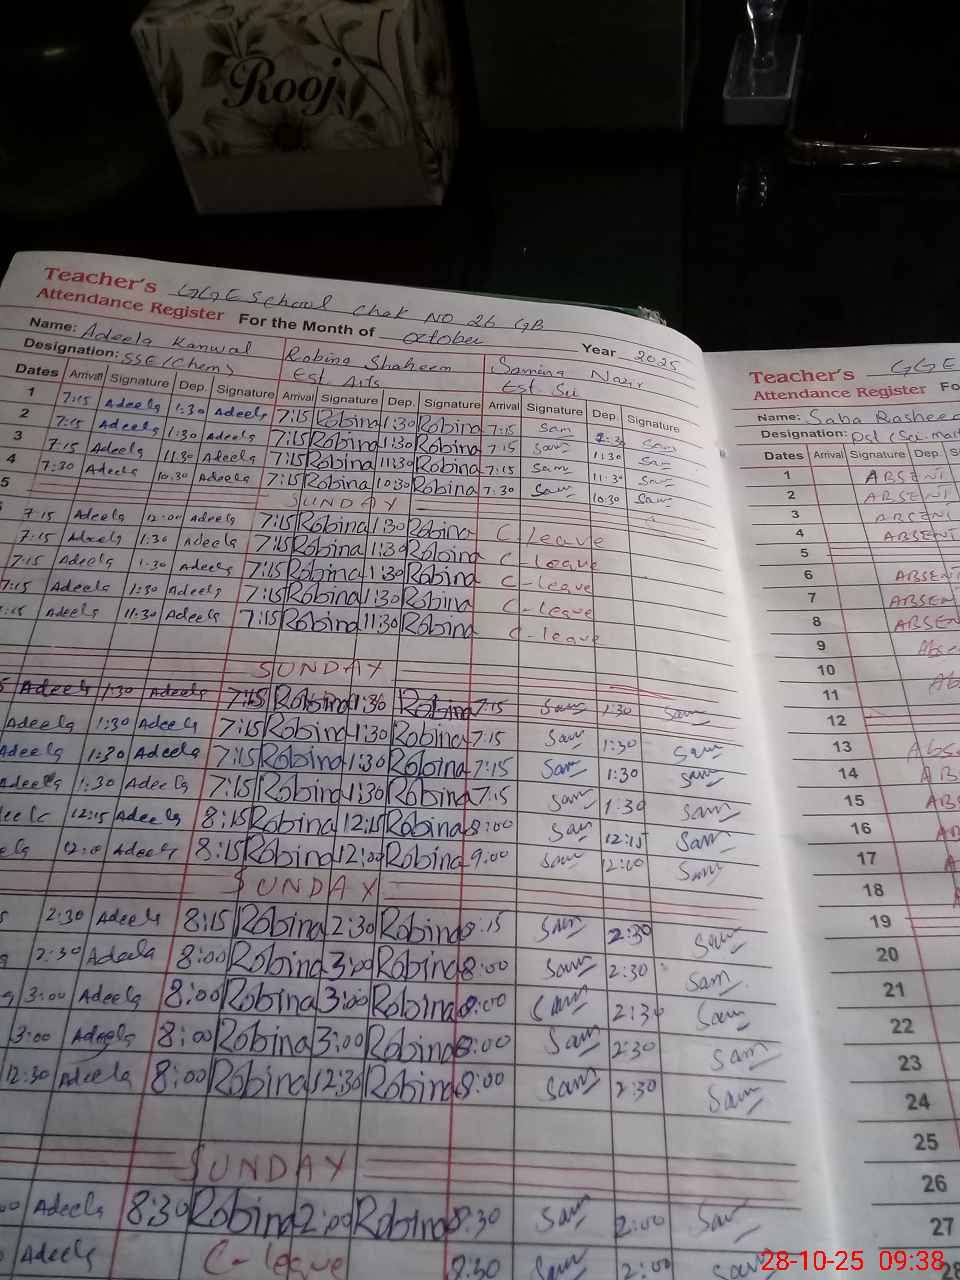 Rooj
Teacher's GGE School Chak NO 26 GB
Attendance Register For the Month of October Year 2025
Name: Adeela Kanwal Robina Shaheen Samina Nazir
Designation: SSE (Chem) Est. Arts Est. Sci
Dates Arrival Signature Dep. Signature Arrival Signature Dep. Signature Arrival Signature Dep. Signature
1 7:15 Adeela 1:30 Adeela 7:15 Robina 1:30 Robina 7:15 Sam Sam
2 7:15 Adeela 1:30 Adeela 7:15 Robina 1:30 Robina 7:15 Sam 11:30 Sam
3 7:15 Adeela 11:30 Adeela 7:15 Robina 11:30 Robina 7:15 Sam 11:30 Sam
4 7:30 Adeela 10:30 Adeela 7:15 Robina 10:30 Robina 7:30 Sam 10:30 Sam
5 SUNDAY
7:15 Adeela 12:00 Adeela 7:15 Robina 1:30 Robina C-leave
7:15 Adeela 1:30 Adeela 7:15 Robina 1:30 Robina C-leave
7:15 Adeela 1:30 Adeela 7:15 Robina 1:30 Robina C-leave
7:15 Adeela 1:30 Adeela 7:15 Robina 1:30 Robina C-leave
7:15 Adeela 11:30 Adeela 7:15 Robina 11:30 Robina C-leave
SUNDAY
Adeela 1:30 Adeela 7:15 Robina 1:30 Robina 7:15 Sam 1:30 Sam
Adeela 1:30 Adeela 7:15 Robina 1:30 Robina 7:15 Sam 1:30 Sam
Adeela 1:30 Adeela 7:15 Robina 1:30 Robina 7:15 Sam 1:30 Sam
Adeela 1:30 Adeela 7:15 Robina 1:30 Robina 7:15 Sam 1:30 Sam
12:15 Adeela 8:15 Robina 12:15 Robina 8:00 Sam 12:15 Sam
Adeela 8:15 Robina 12:00 Robina 9:00 Sam 12:00 Sam
SUNDAY
2:30 Adeela 8:15 Robina 2:30 Robina 8:15 Sam 2:30 Sam
2:30 Adeela 8:00 Robina 3:00 Robina 8:00 Sam 2:30 Sam
3:00 Adeela 8:00 Robina 3:00 Robina 8:00 Sam 2:30 Sam
3:00 Adeela 8:00 Robina 3:00 Robina 8:00 Sam 2:30 Sam
12:30 Adeela 8:00 Robina 12:30 Robina 8:00 Sam 2:30 Sam
SUNDAY
Adeela 8:30 Robina 2:00 Robina 8:30 Sam 2:00 Sam
Adeela C-leave 8:30 Sam 2:00 Sam
Teacher's GGE
Attendance Register Fo
Name: Saba Rasheed
Designation: Pst (Sci-mat
Dates Arrival Signature Dep. S
1 ABSENT
2 ABSENT
3 ABSENT
4 ABSENT
5
6 ABSENT
7 ABSENT
8 ABSEN
9 Abse
10 Ab
11
12
13 Abse
14 AB
15 ABS
16 AB
17 A
18 A
19
20
21
22
23
24
25
26
27
28
28-10-25 09:38